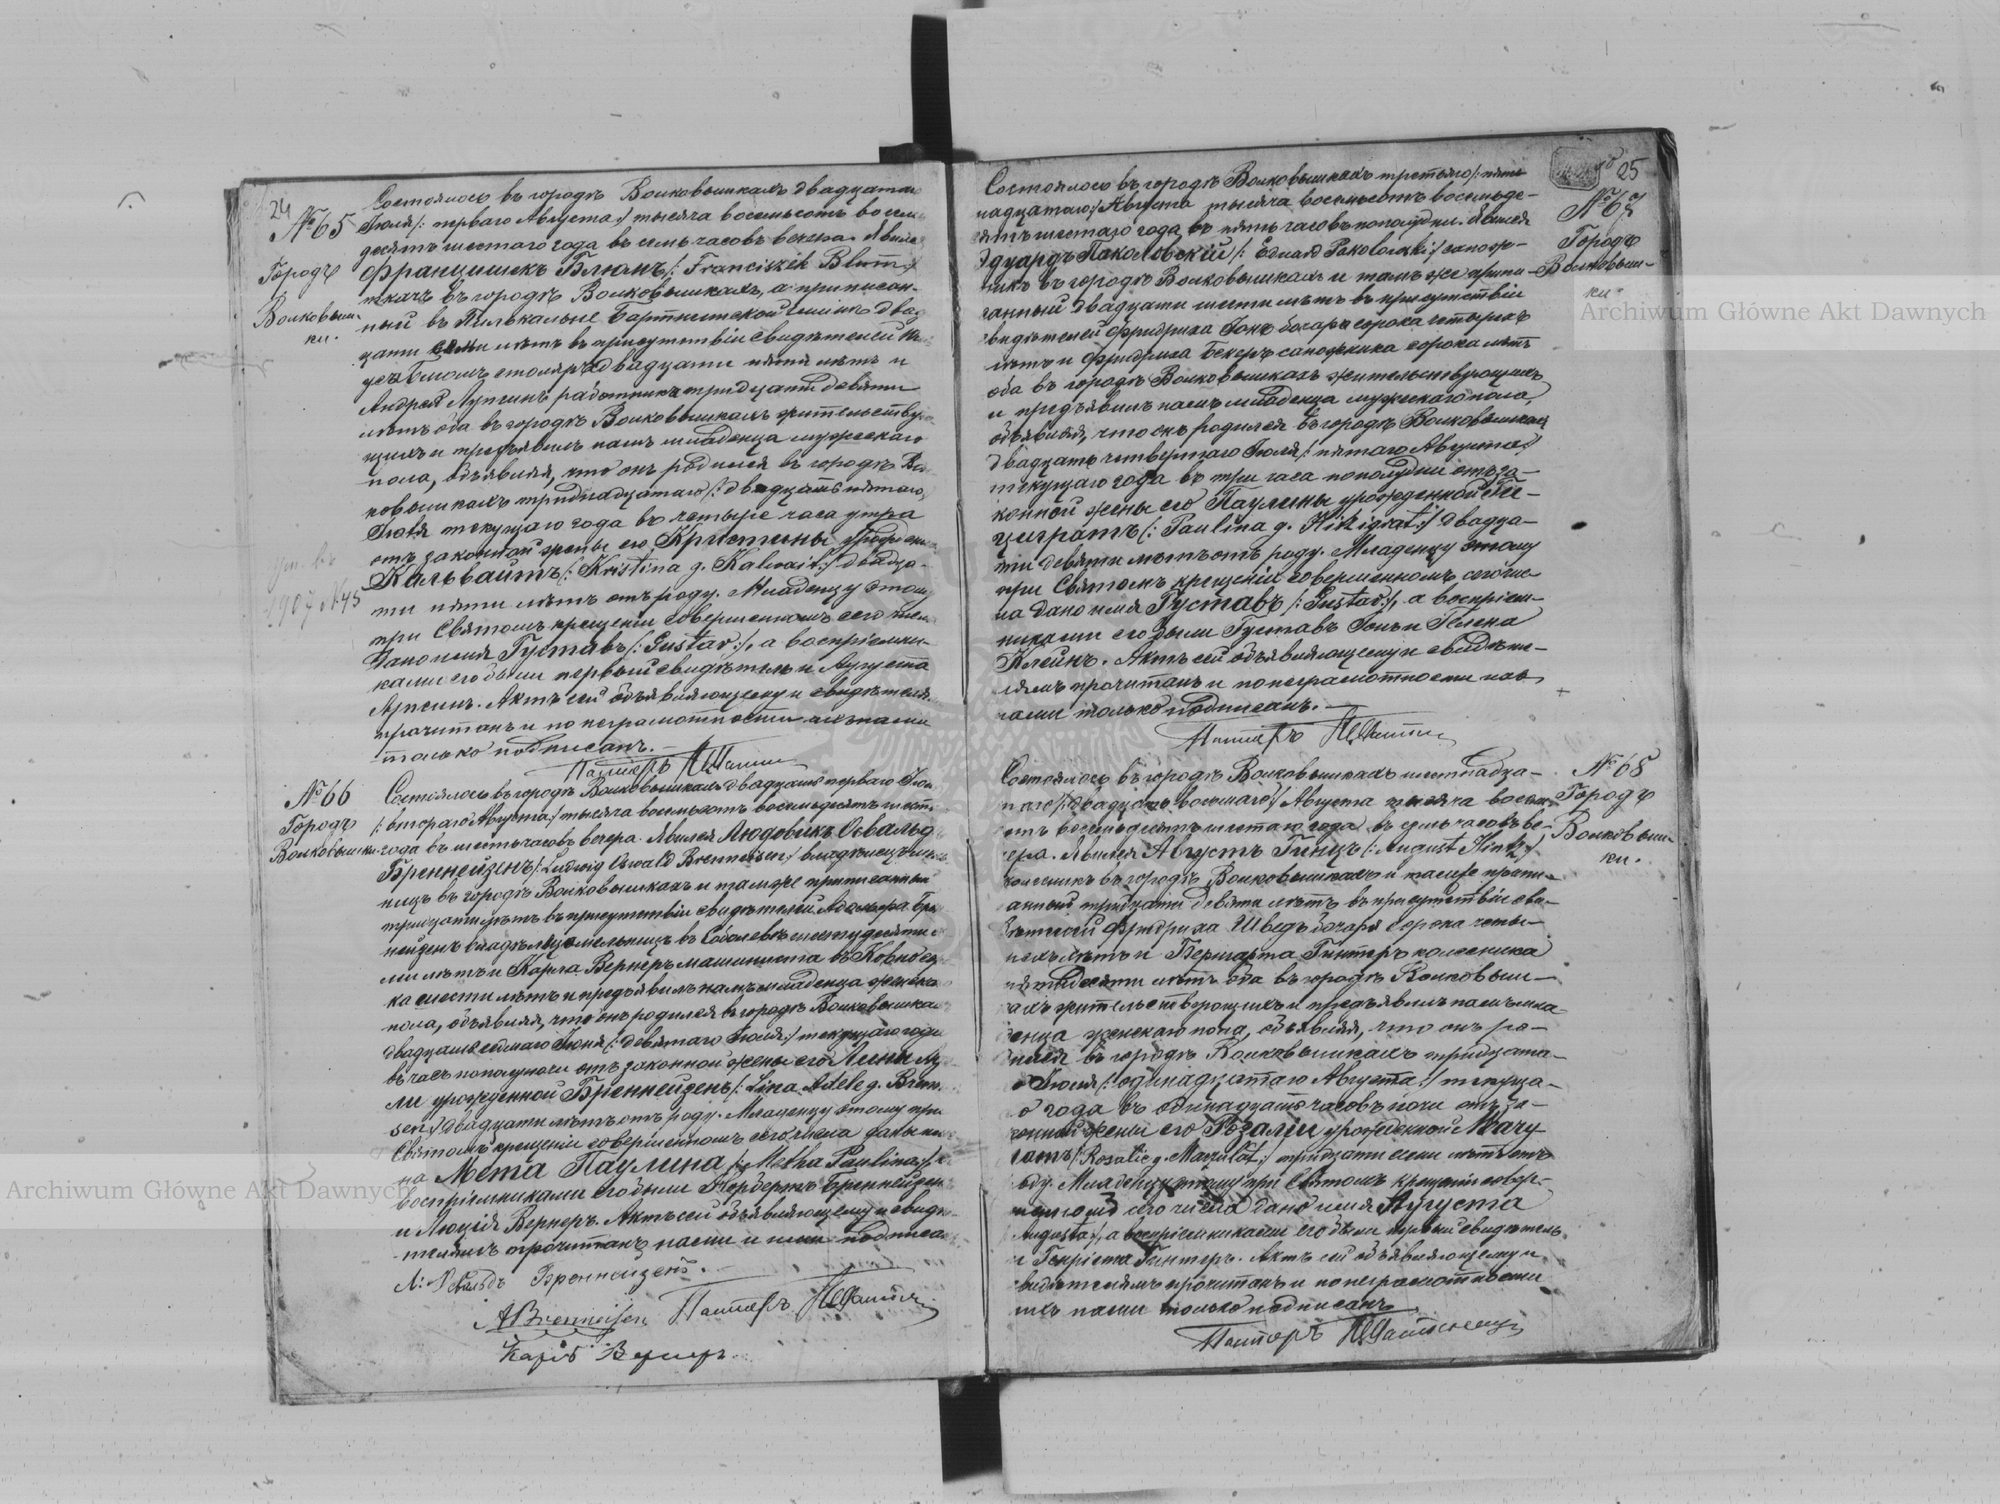 24
№ 65
Городъ
Волковыш-
ки.
Состоялось въ городѣ Волковышкахъ двадцатаго
Іюля /: перваго Августа :/ тысяча восемьсотъ восемь
десятъ шестаго года въ семь часовъ вечера. Явился
Францишекъ Блюмъ /: Franciszek Blum :/
ткачъ въ городѣ Волковышкахъ, а приписан-
ный въ гминѣ два
цати семи лѣтъ въ присутствіи свидѣтелей
столяра двадцати пяти лѣтъ и
Андрея работника тридцати девяти
лѣтъ оба въ городѣ Волковышкахъ жительству-
щихъ и предъявилъ намъ младенца мужескаго
пола, объявляя, что онъ родился въ городѣ Вол
ковышкахъ тринадцатаго /: двадцать пятаго :/
Іюля текущаго года въ четыре часа утра
отъ законной жены его Кристины урожденной
Кальвайтъ /: Kristina g. Kalwait :/ двадца-
ти пяти лѣтъ отъ роду. Младенцу этому
при Святомъ крещеніи совершенномъ сего числа
дано имя Густавъ /: Gustav :/, а воспріемни-
ками его были первый свидѣтель и Августа
Актъ сей объявляющему и свидѣтелямъ
прочитанъ и по неграмотности ихъ нами
только подписанъ.
Пасторъ
№ 66
Городъ
Волковышки
Состоялось въ городѣ Волковышкахъ двадцать перваго Іюля
/: втораго Августа :/ тысяча восемьсотъ восемьдесятъ шест
года въ шесть часовъ вечера. Явился Людовикъ Освальд
Бреннейзенъ /: Ludwig Oswald Brenneisen :/ владѣлецъ мель
ницъ въ городѣ Волковышкахъ и тамже приписанный
тридцати лѣтъ въ присутствіи свидѣтелей Адольфа Бре
нейзенъ владѣльца мельницъ въ шестидесяти
ми лѣтъ и Карла Вернеръ машиниста въ Ковно
ка шести лѣтъ и предъявилъ намъ младенца женска
пола, объявляя, что онъ родился въ городѣ Волковышкахъ
двадцать седмаго Іюня /: девятаго Іюля :/ текущаго года
въ часъ пополуночи отъ законной жены его Лины Аде
ли урожденной Бреннейзенъ /: Lina Adele g. Brennei
sen :/ двадцати лѣтъ отъ роду. Младенцу этому при
Святомъ крещеніи совершенномъ сего числа даны име
на Мета Паулина /: Metha Paulina :/, а
воспріемниками его были Гербертъ Бреннейзенъ
и Люція Вернеръ. Актъ сей объявляющему и свидѣ
телямъ прочитанъ нами и ими подписа
Л: Освальдъ Бреннейзенъ.
ABrenneisen Пасторъ
Карлъ Вернеръ.
25
№ 67
Городъ
Волковыш-
ки.
Состоялось въ городѣ Волковышкахъ третьяго /: пят
надцатаго :/ Августа тысяча восемьсотъ восемьде-
сятъ шестаго года въ пять часовъ пополудни. Явился
Эдуардъ Паколовскій /: Eduard Pakolowski :/ сапож-
никъ въ городѣ Волковышкахъ и тамъ же припи-
санный двадцати шести лѣтъ въ присутствіи
свидѣтелей Фридриха Гонъ сорока четырехъ
лѣтъ и Фридриха Бекеръ сапожника сорока лѣтъ
оба въ городѣ Волковышкахъ жительствующихъ
и предъявилъ намъ младенца мужескаго пола,
объявляя, что онъ родился въ городѣ Волковышкахъ
двадцать четвертаго Іюля /: пятаго Августа :/
текущаго года въ три часа пополудни отъ за-
конной жены его Паулины урожденной Ги-
цигратъ /: Paulina g. Hitzigrat :/ двадца-
ти девяти лѣтъ отъ роду. Младенцу этому
при Святомъ крещеніи совершенномъ сего чис-
ла дано имя Густавъ /: Gustav :/, а воспріем-
никами его были Густавъ Гонъ и Гелена
Клейнъ. Актъ сей объявляющему и свидѣте-
лямъ прочитанъ и по неграмотности ихъ
нами только подписанъ.
Пасторъ
№ 68
Городъ
Волковыш-
ки.
Состоялось въ городѣ Волковышкахъ шестнадца-
таго /: двадцать восьмаго :/ Августа тысяча восемь
сотъ восемьдесятъ шестаго года въ семь часовъ ве-
чера. Явился Августъ Гинцъ /: August Hintz :/
колесникъ въ городѣ Волковышкахъ и тамже припи-
санный тридцати девяти лѣтъ въ присутствіи сви-
дѣтелей Фридриха Шведъ бочара сорока четы-
рехъ лѣтъ и Бернгарта Гинтеръ колесника
пятидесяти лѣтъ оба въ городѣ Волковыш-
кахъ жительствующихъ и предъявилъ намъ мла-
денца женскаго пола, объявляя, что онъ ро-
дился въ городѣ Волковышкахъ тридцата-
го Іюля /: одинадцатаго Августа :/ текуща-
го года въ одинадцать часовъ ночи отъ за-
конной жены его Розаліи урожденной Мачу
латъ /: Rosalie g. Maczulat :/ тридцати семи лѣтъ отъ
роду. Младенцу этому при Святомъ крещеніи совер-
шенномъ сего числа дано имя Августа
/: Augusta :/, а воспріемниками его были первый свидѣтель
и Генріета Гинтеръ. Актъ сей объявляющему и
свидѣтелямъ прочитанъ и по неграмотности
ихъ нами только подписанъ
Пасторъ
Archiwum Główne Akt Dawnych
Archiwum Główne Akt Dawnych